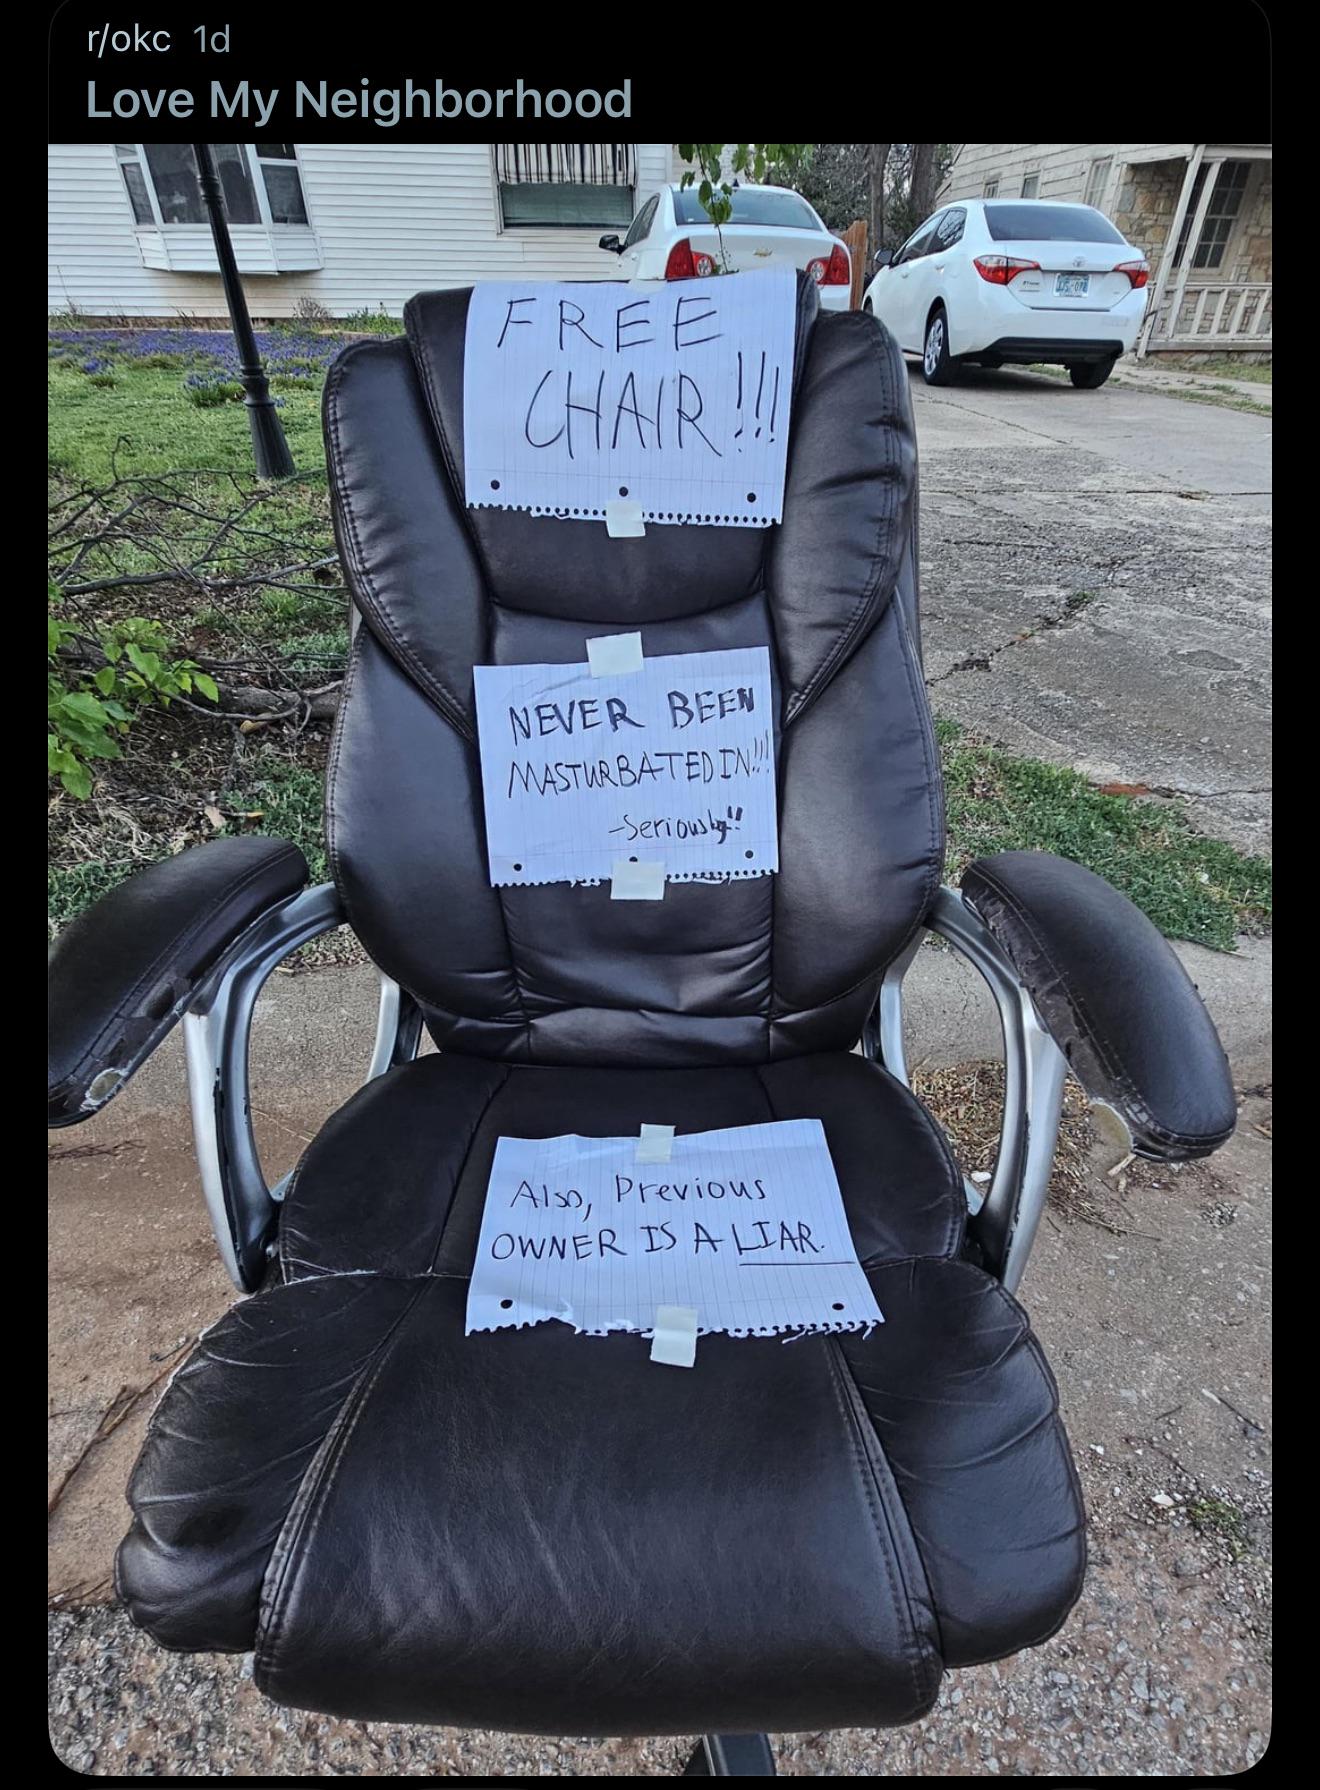 r/okc 1d
Love My Neighborhood
FREE
CHAIR!!!
NEVER BEEN
MASTURBATED IN!!!
-Seriously!!
Also, Previous
OWNER IS A LIAR.